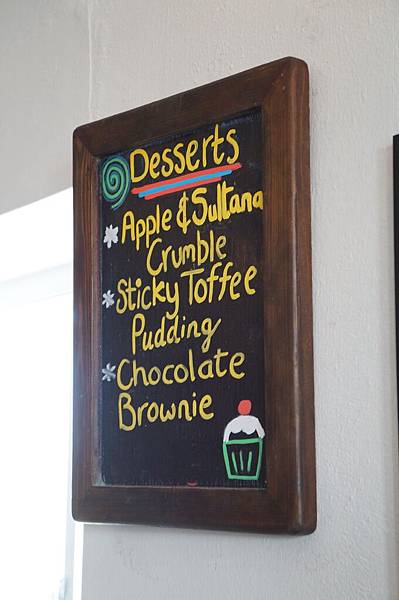 Desserts
Apple & Sultana
Crumble
Sticky Toffee
Pudding
Chocolate
Brownie